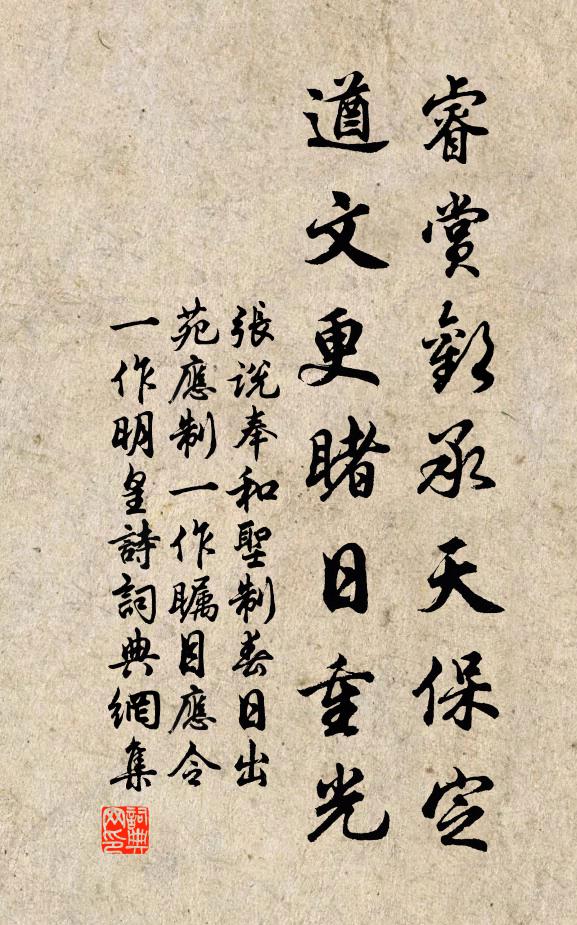 睿賞歡承天保定
遒文更睹日重光
張說奉和聖制春日出
苑應制一作瞩目應令
一作明皇詩詞典網集
詞典
网印